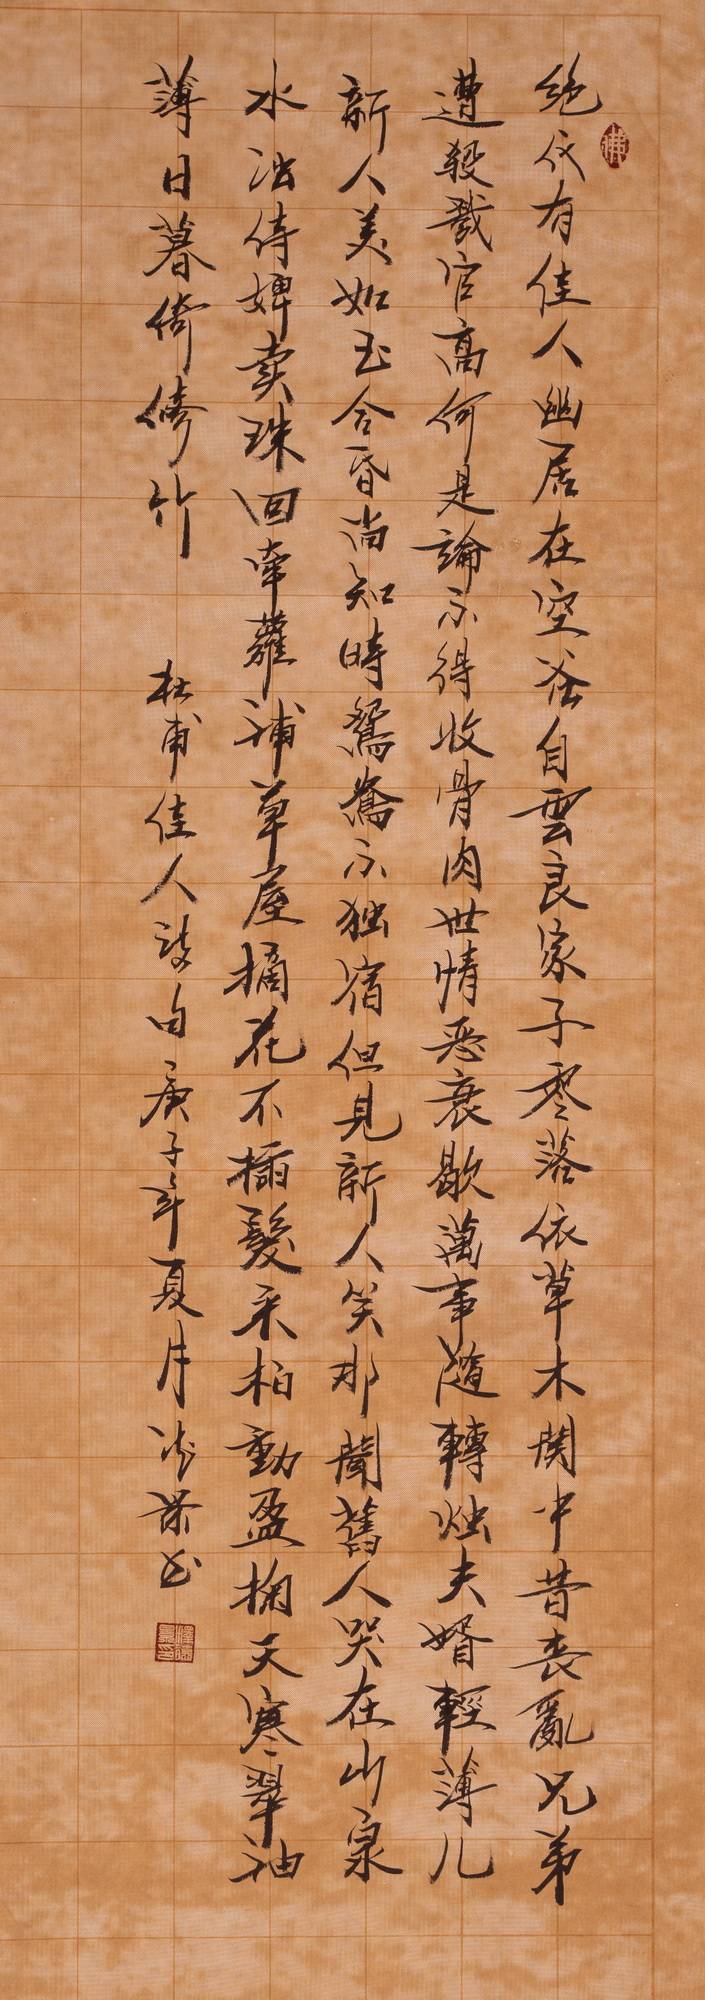 绝代有佳人幽居在空谷自雲良家子零落依草木関中昔丧亂兄弟
遭殺戮官高何足論不得收骨肉世情恶衰歇萬事隨轉烛夫婿輕薄儿
新人美如玉合昏尚知時鴛鴦不独宿但見新人笑那聞舊人哭在山泉
水浊侍婢卖珠回牵蘿補草屋摘花不插髮采柏動盈掬天寒翠袖
薄日暮倚修竹 杜甫佳人詩句庚子年夏月 书